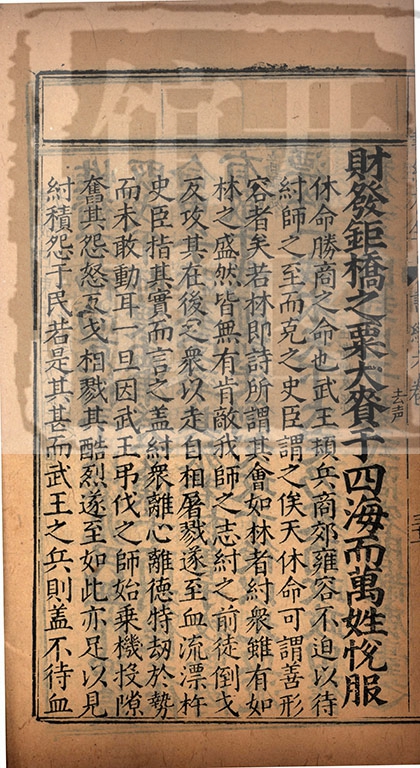 財發鉅橋之粟大賚于四海而萬姓恱服
去声
休命勝商之命也武王頓兵商郊雍容不迫以待
紂師之至而克之史臣謂之俟天休命可謂善形
容者矣若林即詩所謂其會如林者紂衆雖有如
林之盛然皆無有肯敵我師之志紂之前徒倒戈
反攻其在後之衆以走自相屠戮遂至血流漂杵
史臣指其實而言之盖紂衆離心離德特劫於勢
而未敢動耳一旦因武王弔伐之師始乗機投隙
奮其怨怒反戈相戮其酷烈遂至如此亦足以見
紂積怨于民若是其甚而武王之兵則盖不待血